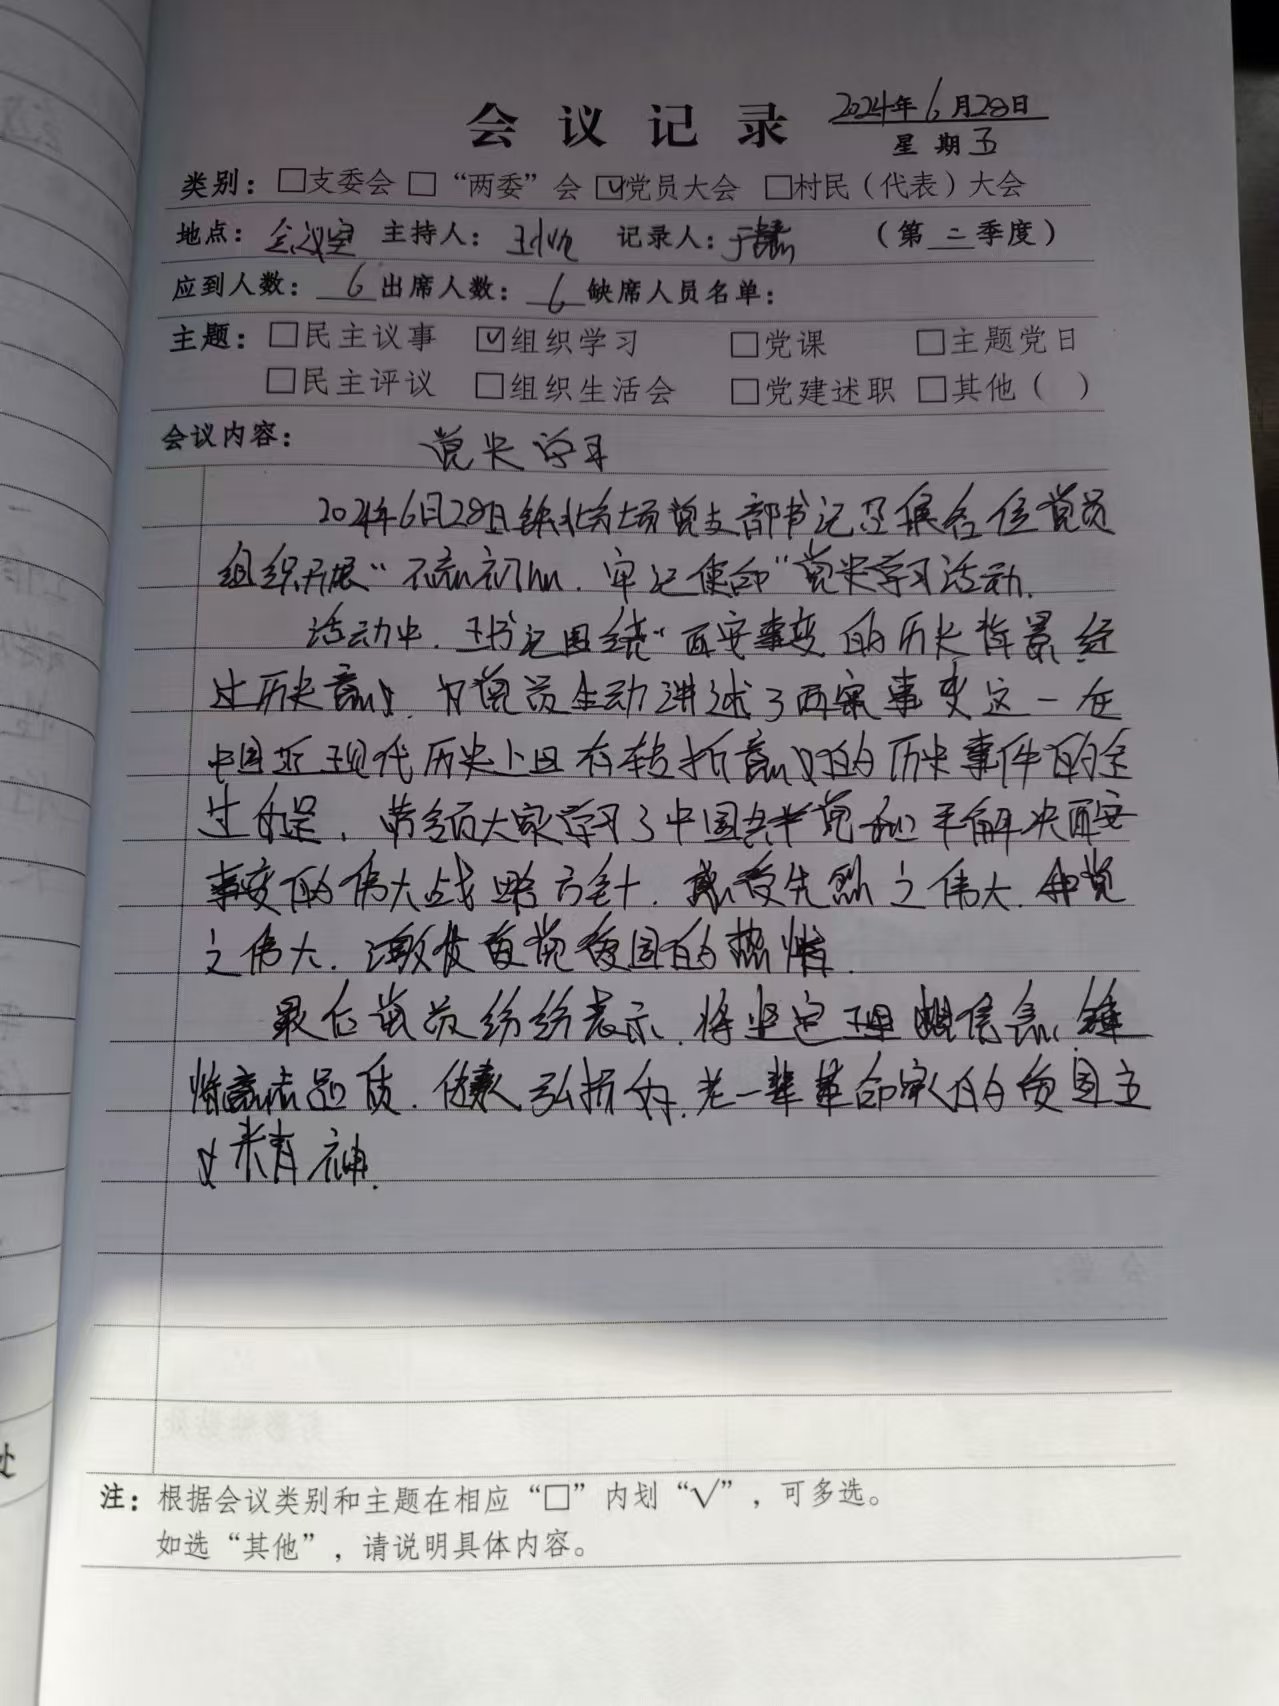 会议记录 2024年6月28日
星期五
类别：□支委会 □“两委”会 ☑党员大会 □村民（代表）大会
地点：会议室 主持人： 记录人：于 （第二季度）
应到人数：6 出席人数：6 缺席人员名单：
主题：□民主议事 ☑组织学习 □党课 □主题党日
□民主评议 □组织生活会 □党建述职 □其他（ ）
会议内容： 党史学习
2024年6月28日 党支部书记召集各位党员
组织开展“不忘初心.牢记使命”党史学习活动.
活动中.王书记围绕“西安事变的历史背景.经
过历史意义.为党员生动讲述了西安事变这一在
中国近现代历史上具有转折意义的历史事件的全
过程.带领大家学习了中国共产党和平解决西安
事变的伟大战略方针.感受先烈之伟大.中党
之伟大.激发爱党爱国的热情.
最后党员纷纷表示.将坚定理想信念.锤
炼意志品质.传承弘扬好.老一辈革命家的爱国主
义精神.
注：根据会议类别和主题在相应“□”内划“√”，可多选。
如选“其他”，请说明具体内容。
处